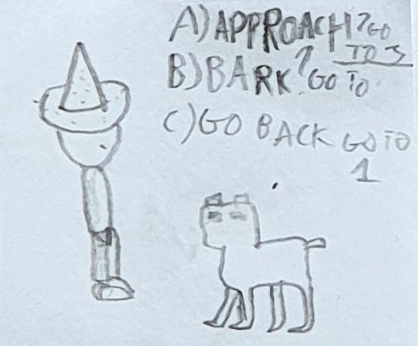 A) APPROACH? GO
TO 3
B) BARK? GO TO
C) GO BACK GO TO
1